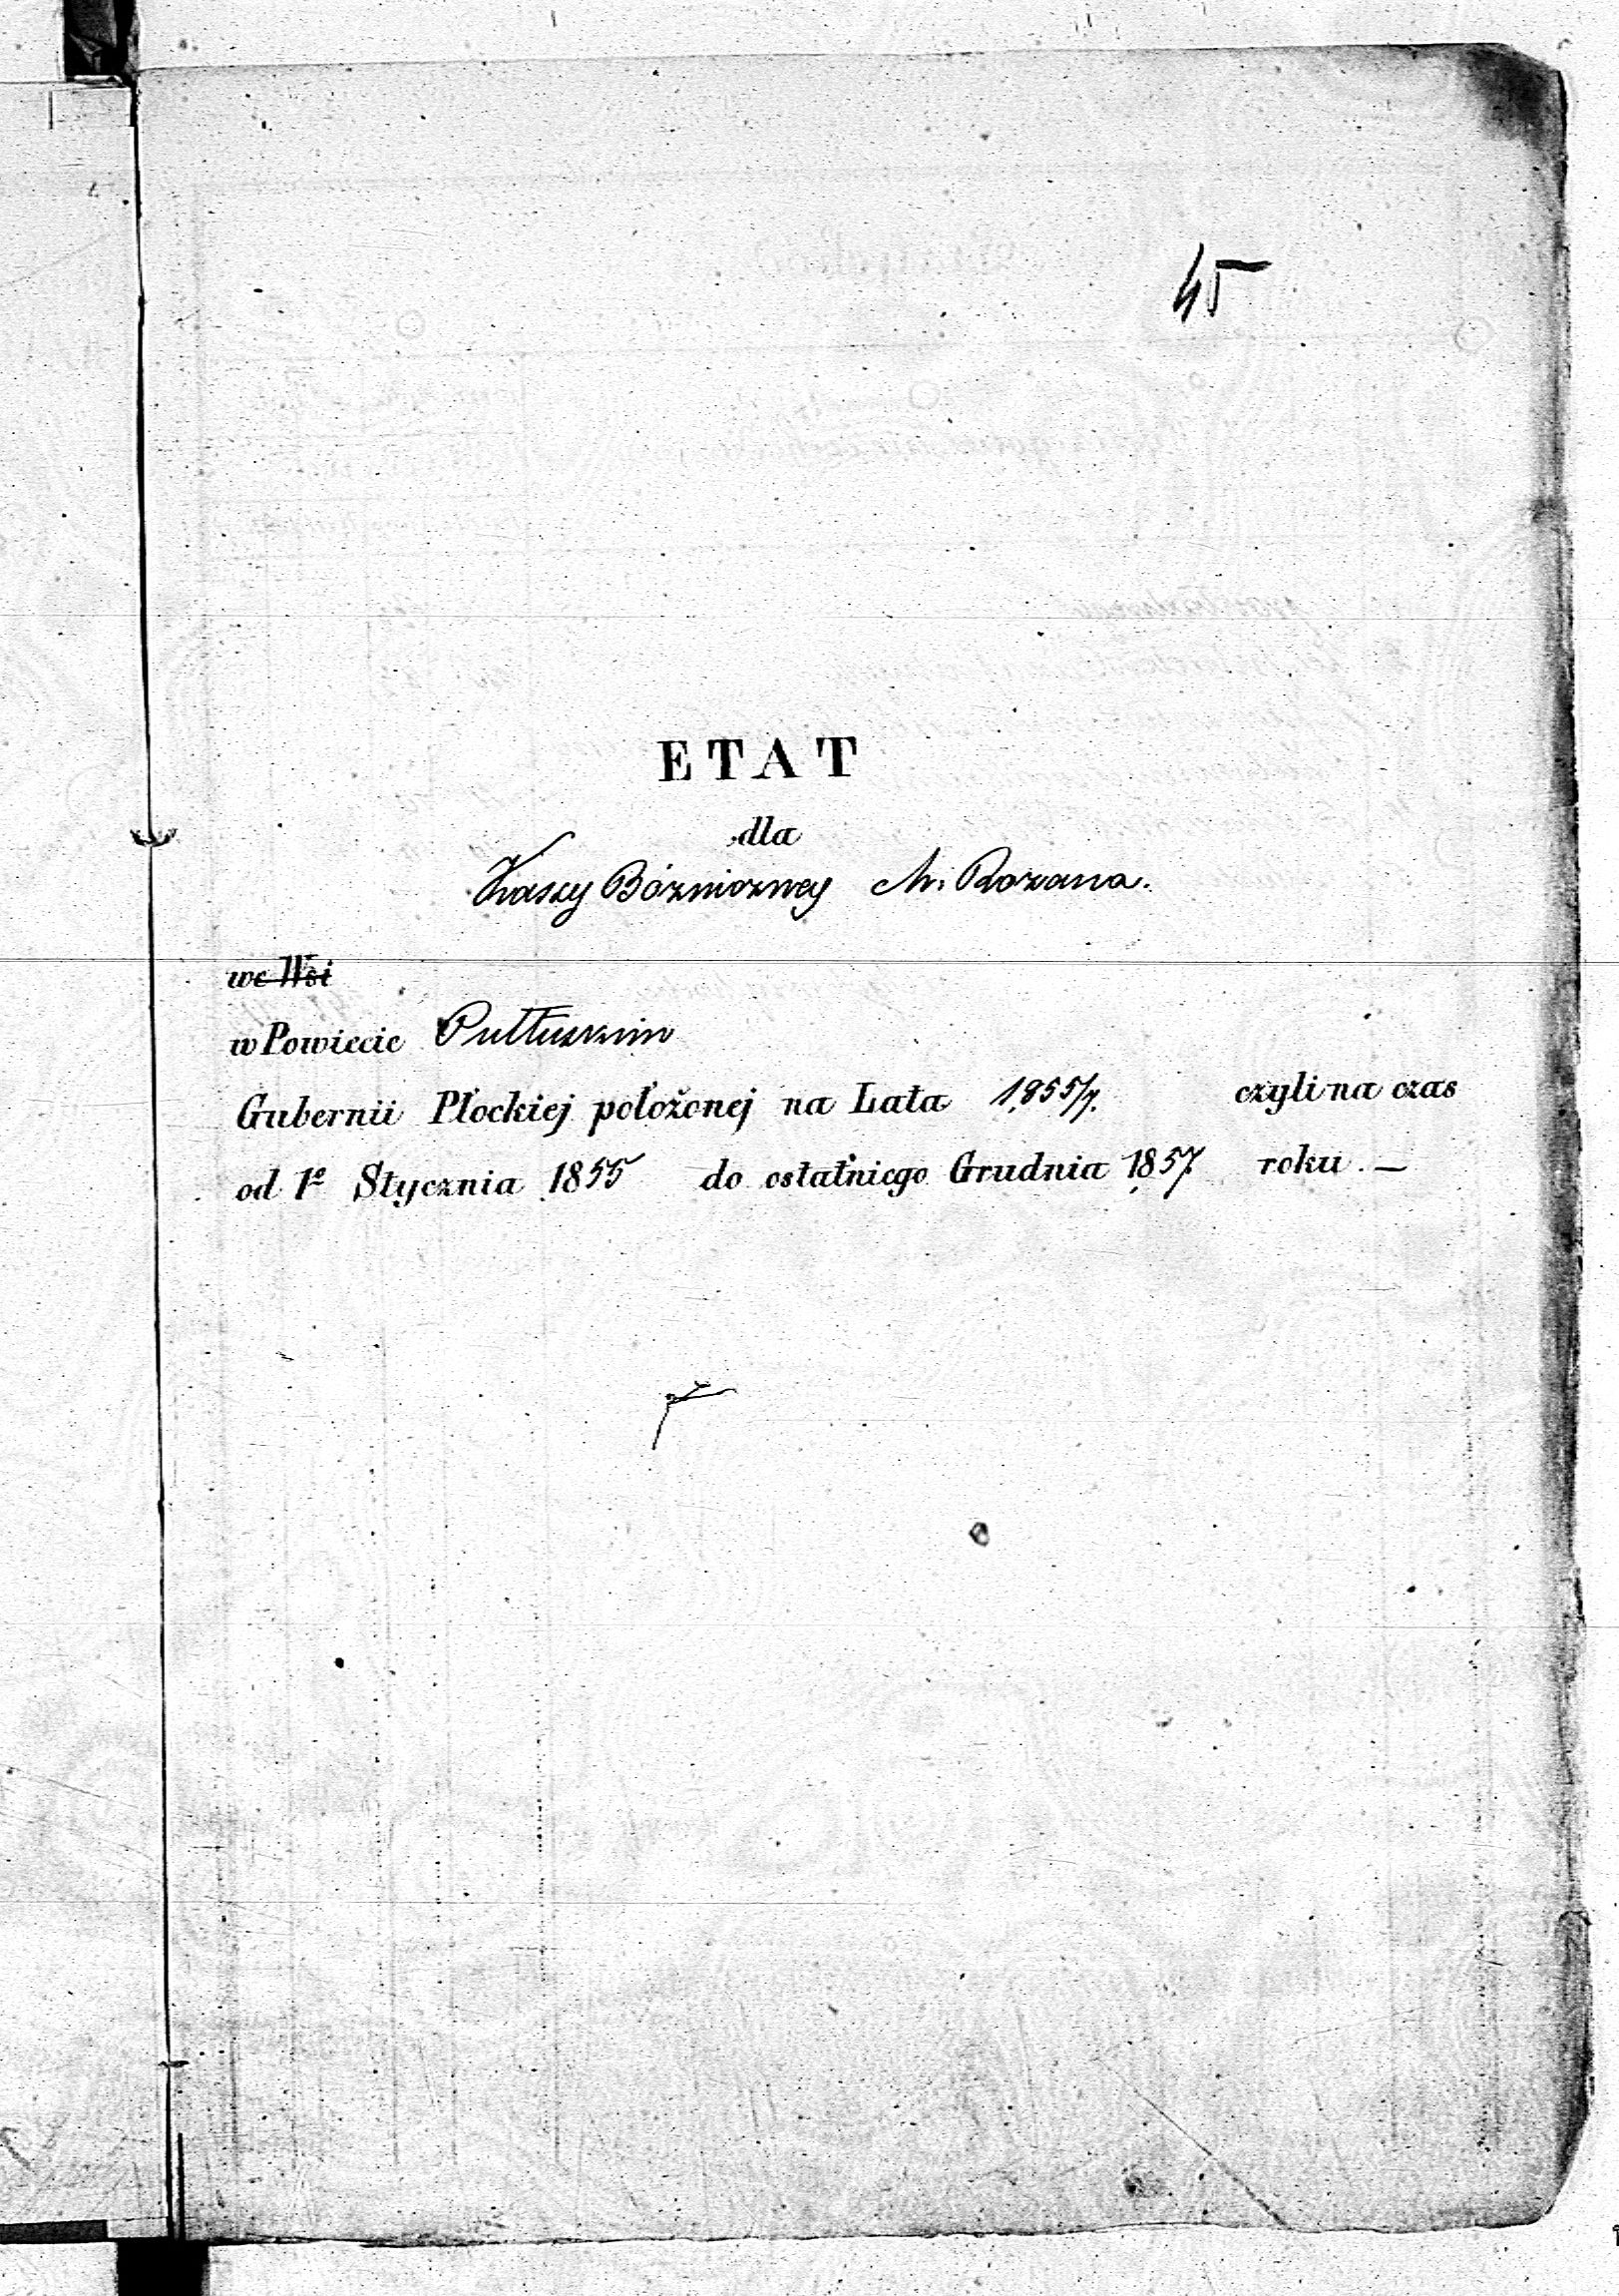 45
ETAT
dla
Kassy Bóżniczney M. Rozana.
we Wsi
w Powiecie Pułtuskim
Gubernii Płockiej położonej na Lata 1855/7. czyli na czas
od 1º Stycznia 1855 do ostatniego Grudnia 1857 roku. —